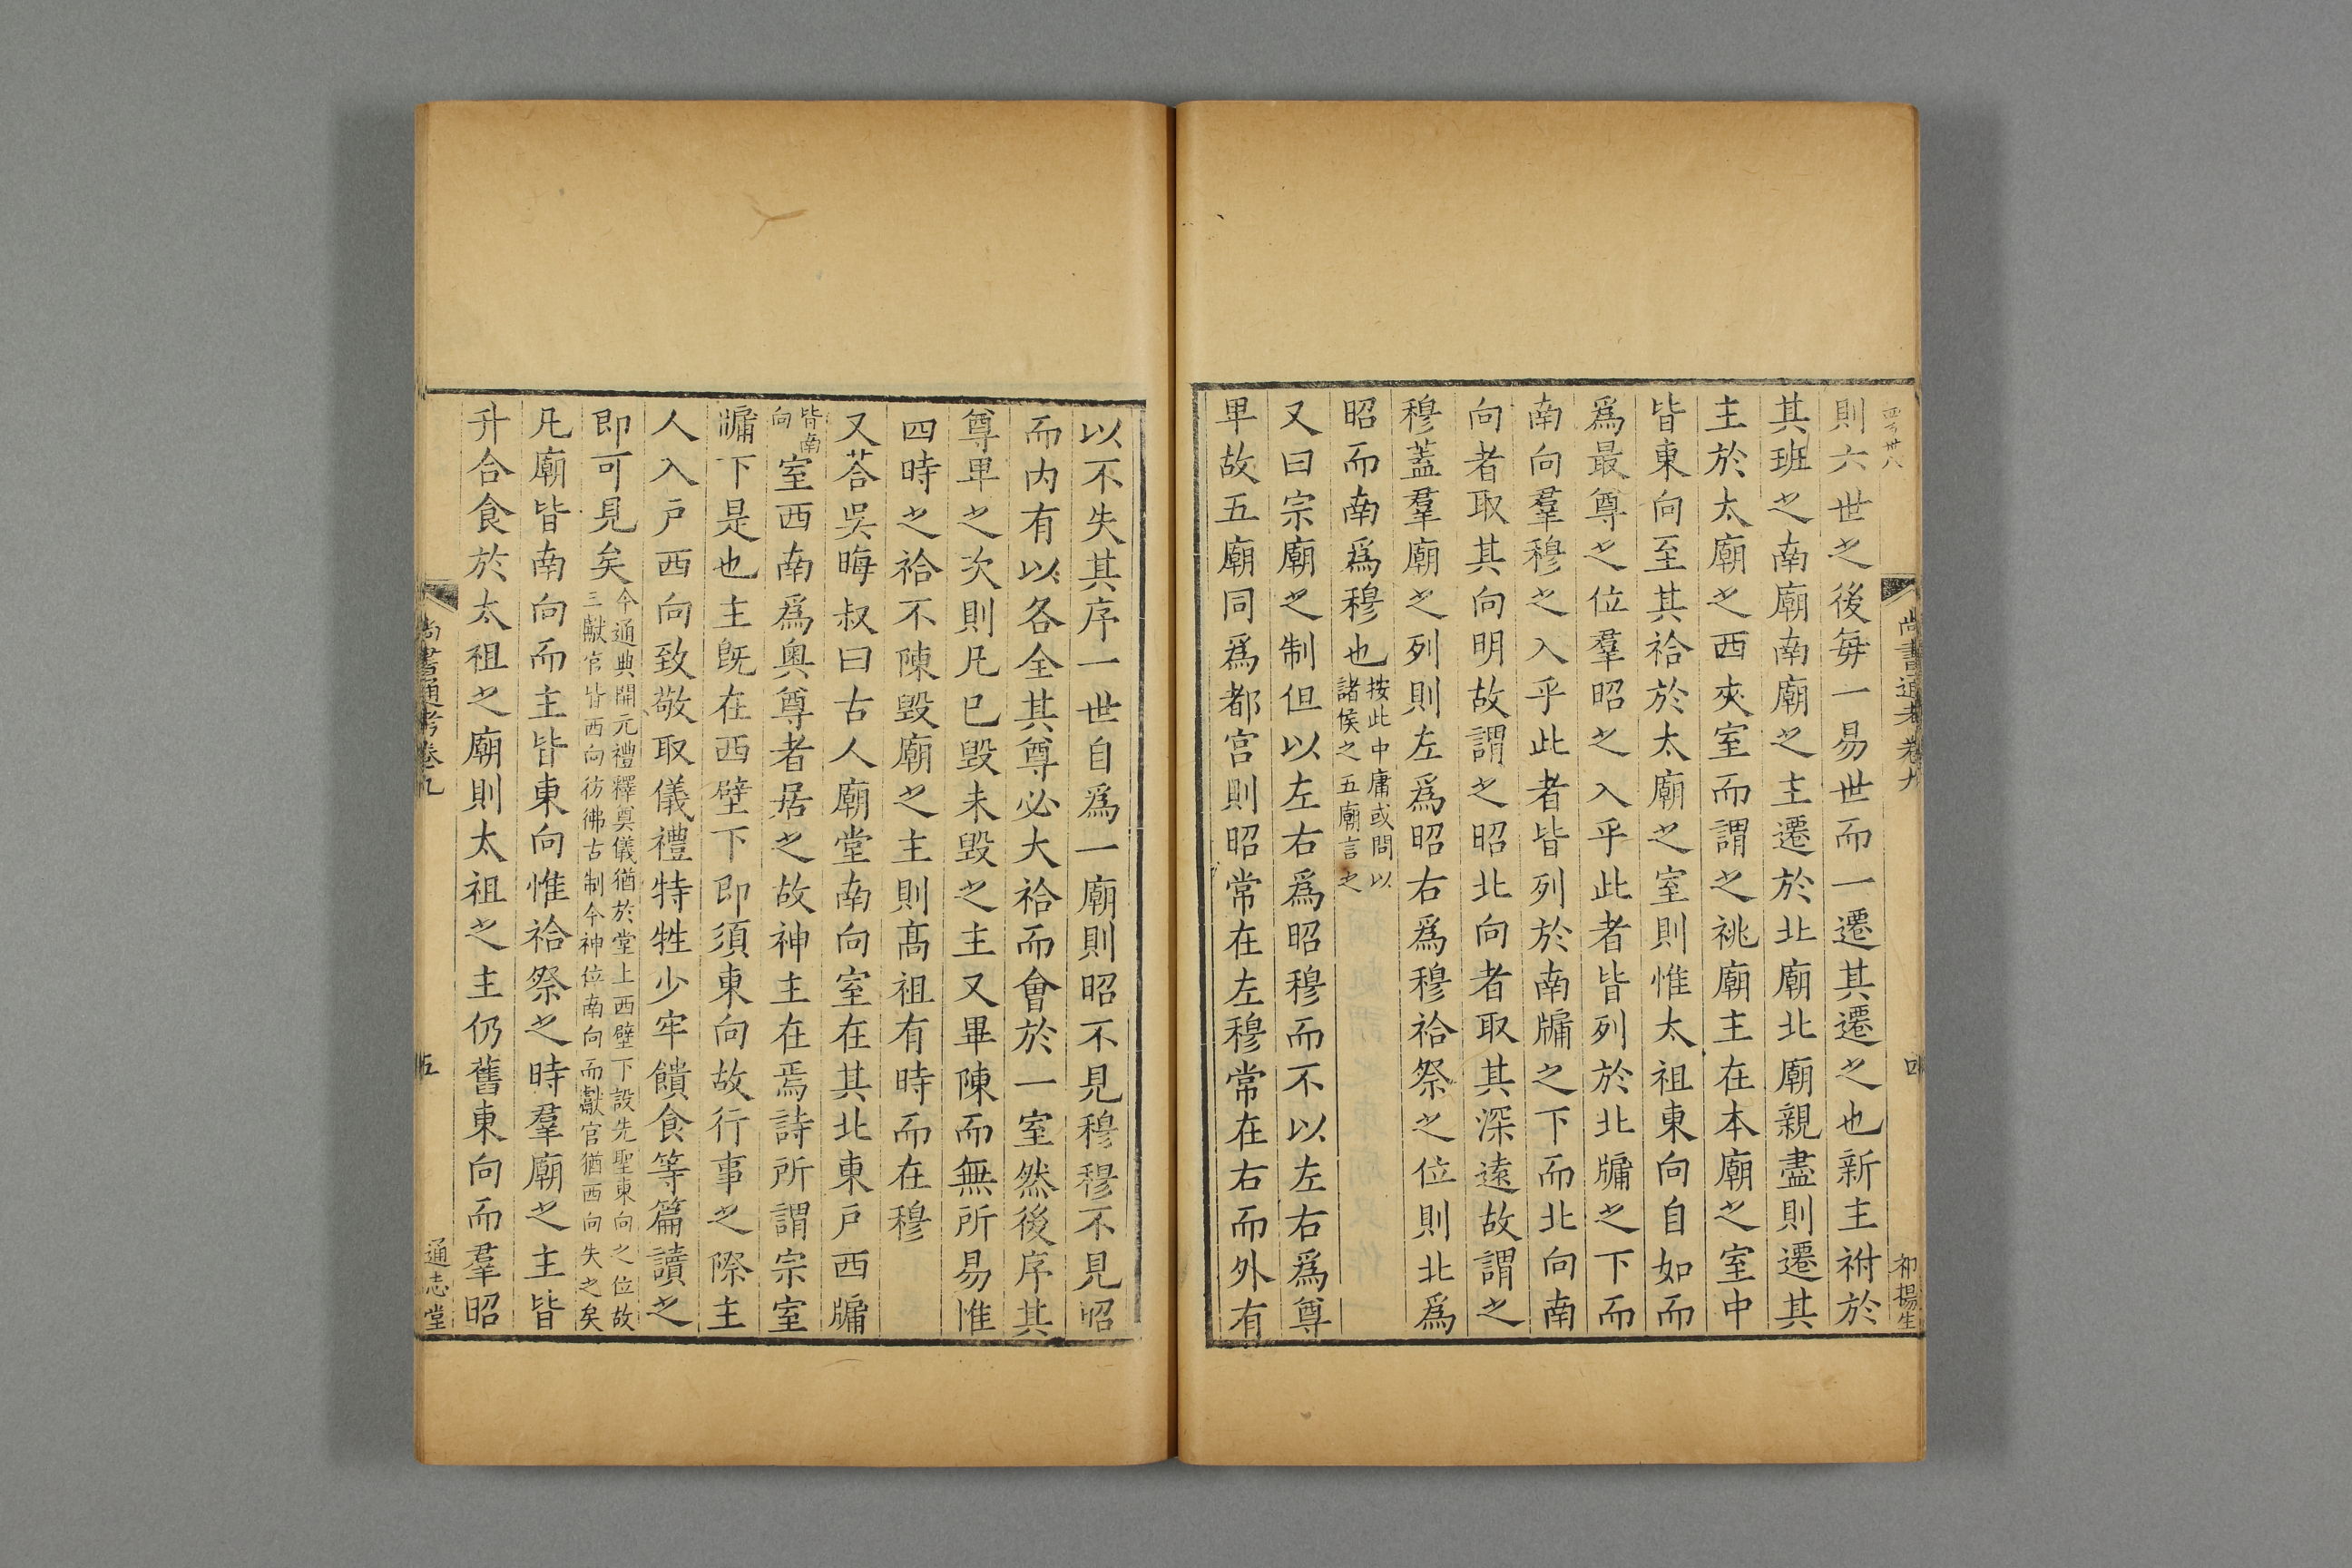 尚書通考卷九
四
則六世之後每一易世而一遷其遷之也新主祔於
其班之南廟南廟之主遷於北廟北廟親盡則遷其
主於太廟之西夾室而謂之祧廟主在本廟之室中
皆東向至其祫於太廟之室則惟太祖東向自如而
爲最尊之位羣昭之入乎此者皆列於北牖之下而
南向羣穆之入乎此者皆列於南牖之下而北向南
向者取其向明故謂之昭北向者取其深遠故謂之
穆蓋羣廟之列則左爲昭右爲穆祫祭之位則北爲
昭而南爲穆也按此中庸或問以
諸侯之五廟言之
又曰宗廟之制但以左右爲昭穆而不以左右爲尊
卑故五廟同爲都宮則昭常在左穆常在右而外有
以不失其序一世自爲一廟則昭不見穆穆不見昭
而内有以各全其尊必大祫而會於一室然後序其
尊卑之次則凡已毀未毀之主又畢陳而無所易惟
四時之祫不陳毀廟之主則髙祖有時而在穆
又荅吳晦叔曰古人廟堂南向室在其北東戶西牖
皆南
向室西南爲奥尊者居之故神主在焉詩所謂宗室
牖下是也主旣在西壁下即須東向故行事之際主
人入戶西向致敬取儀禮特牲少牢饋食等篇讀之
即可見矣今通典開元禮釋奠儀猶於堂上西壁下設先聖東向之位故
三獻官皆西向彷彿古制今神位南向而獻官猶西向失之矣
凡廟皆南向而主皆東向惟祫祭之時羣廟之主皆
升合食於太祖之廟則太祖之主仍舊東向而羣昭
尚書通考卷九
五
通志堂